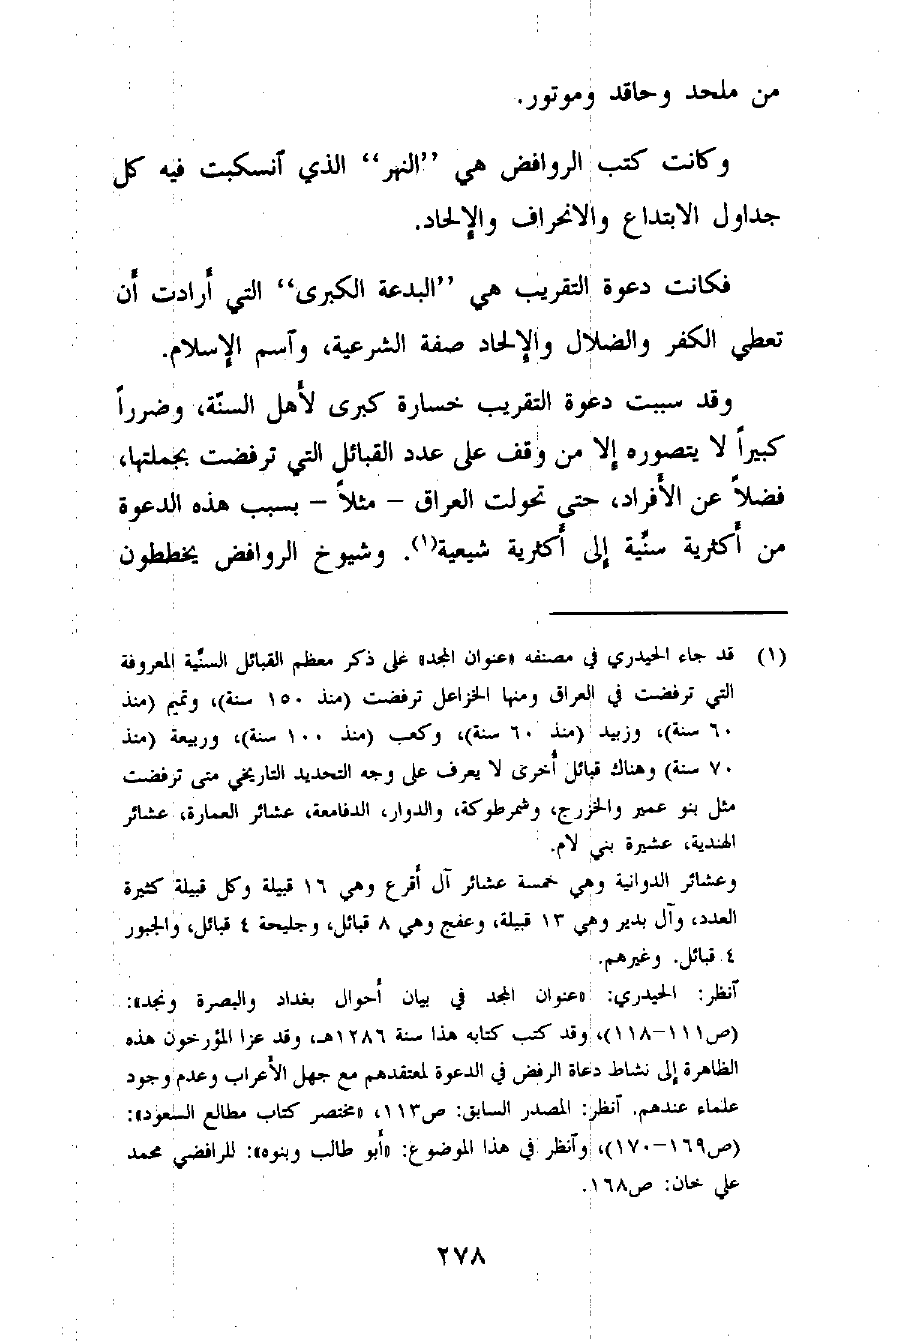 من ملحد وحاقد وموتور.
وكانت كتب الروافض هي ”النهر“ الذي آنسكبت فيه كل
جداول الابتداع والانحراف والإلحاد.
فكانت دعوة التقريب هي ”البدعة الكبرى“ التي أرادت أن
تعطي الكفر والضلال والإلحاد صفة الشرعية، وآسم الإسلام.
وقد سببت دعوة التقريب خسارة كبرى لأهل السنّة، وضرراً
كبيراً لا يتصوره إلا من وقف على عدد القبائل التي ترفضت بجملتها،
فضلاً عن الأفراد، حتى تحولت العراق – مثلاً – بسبب هذه الدعوة
من أكثرية سنّية إلى أكثرية شيعية(١). وشيوخ الروافض يخططون
(١) قد جاء الحيدري في مصنفه «عنوان المجد» على ذكر معظم القبائل السنّية المعروفة
التي ترفضت في العراق ومنها الخزاعل ترفضت (منذ ١٥٠ سنة)، وتميم (منذ
٦٠ سنة)، وزبيد (منذ ٦٠ سنة)، وكعب (منذ ١٠٠ سنة)، وربيعة (منذ
٧٠ سنة) وهناك قبائل أخرى لا يعرف على وجه التحديد التاريخي متى ترفضت
مثل بنو عمير والخزرج، وشمرطوكة، والدوار، الدفامعة، عشائر العمارة، عشائر
الهندية، عشيرة بني لام.
وعشائر الدوانية وهي خمسة عشائر آل أقرع وهي ١٦ قبيلة وكل قبيلة كثيرة
العدد، وآل بدير وهي ١٣ قبيلة، وعفج وهي ٨ قبائل، وجليحة ٤ قبائل، والجبور
٤ قبائل. وغيرهم.
آنظر: الحيدري: «عنوان المجد في بيان أحوال بغداد والبصرة ونجد»:
(ص١١١–١١٨)، وقد كتب كتابه هذا سنة ١٢٨٦هـ، وقد عزا المؤرخون هذه
الظاهرة إلى نشاط دعاة الرفض في الدعوة لمعتقدهم مع جهل الأعراب وعدم وجود
علماء عندهم. آنظر: المصدر السابق: ص١١٣، «مختصر كتاب مطالع السعود»:
(ص١٦٩–١٧٠)، وآنظر في هذا الموضوع: «أبو طالب وبنوه»: للرافضي محمد
علي خان: ص١٦٨.
٢٧٨